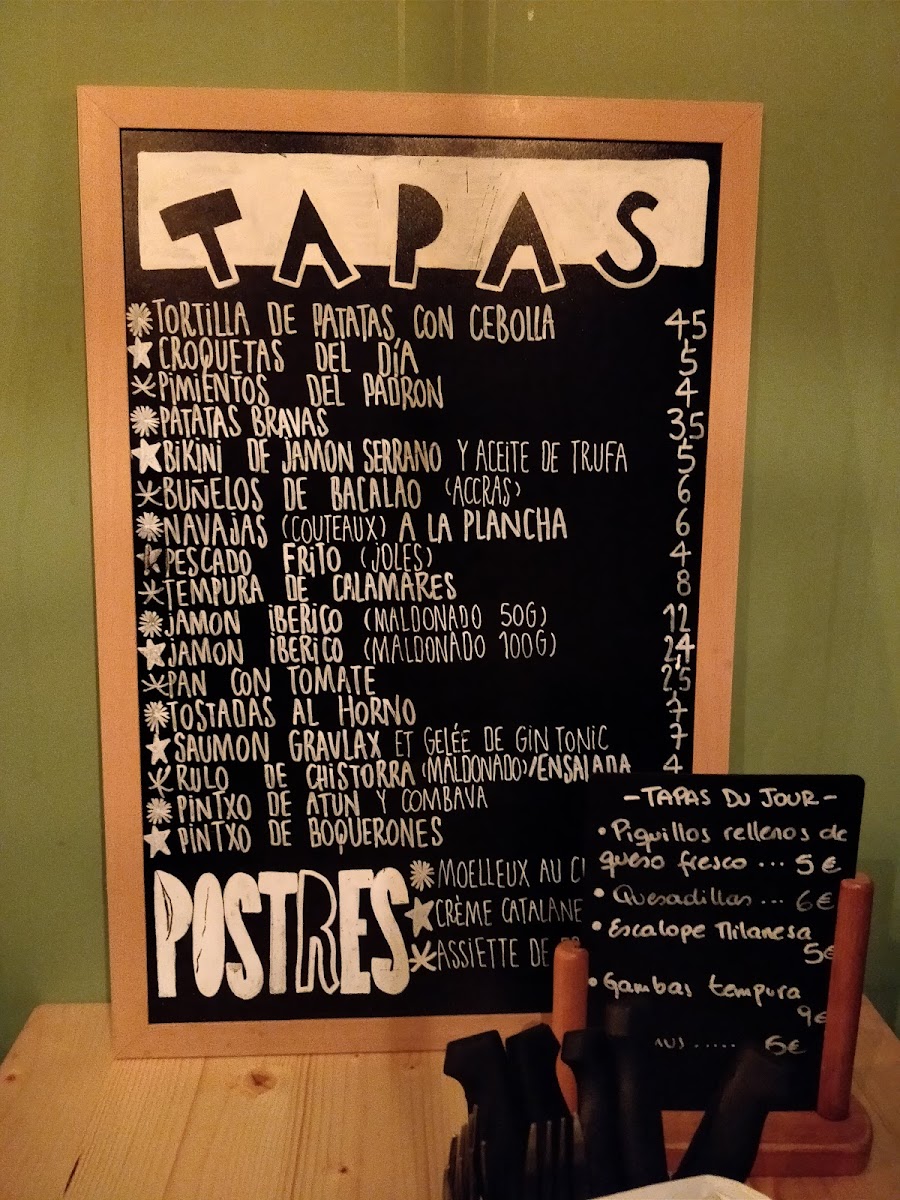 TAPAS
TORTILLA DE PATATAS CON CEBOLLA 4,5
CROQUETAS DEL DÍA 5
PIMIENTOS DEL PADRON 4
PATATAS BRAVAS 3,5
BIKINI DE JAMON SERRANO Y ACEITE DE TRUFA 5
BUÑELOS DE BACALAO (ACCRAS) 6
NAVAJAS (COUTEAUX) A LA PLANCHA 6
PESCADO FRITO (JOLES) 4
TEMPURA DE CALAMARES 8
JAMON IBERICO (MALDONADO 50G) 12
JAMON IBERICO (MALDONADO 100G) 24
PAN CON TOMATE 2,5
TOSTADAS AL HORNO 7
SAUMON GRAVLAX ET GELÉE DE GIN TONIC 7
RULO DE CHISTORRA (MALDONADO)/ENSALADA 4
PINTXO DE ATUN Y COMBAVA
PINTXO DE BOQUERONES
POSTRES
MOELLEUX AU
CRÈME CATALANE
ASSIETTE DE
-TAPAS DU JOUR-
• Piquillos rellenos de
queso fresco ... 5€
• Quesadillas ... 6€
• Escalope Milanesa
5€
• Gambas tempura
9€
..... 6€